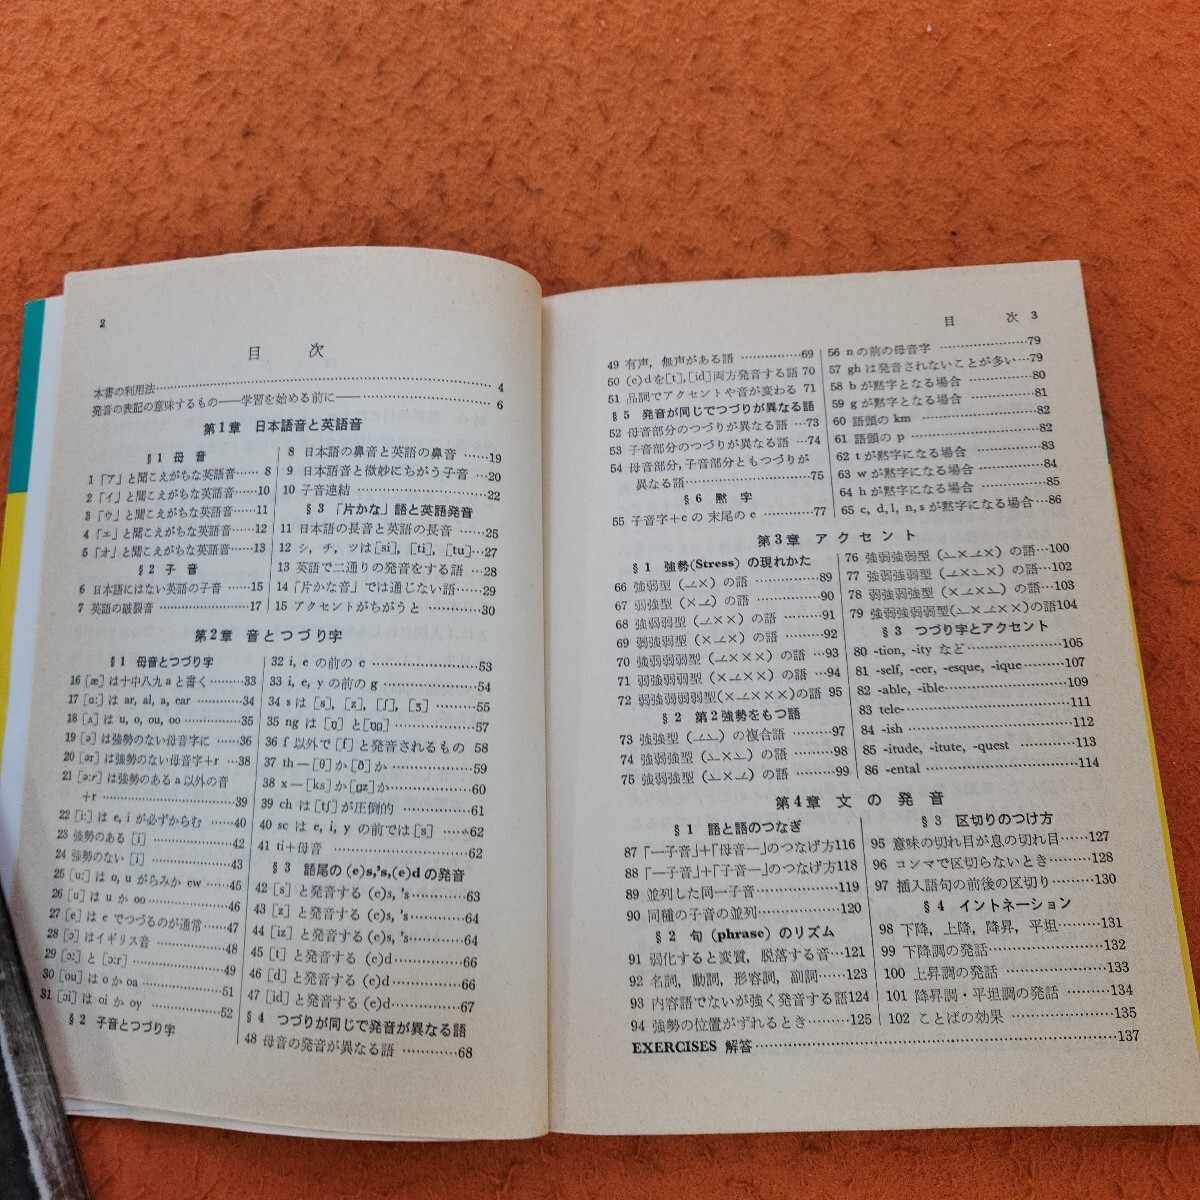 2
目 次
本書の利用法……4
発音の表記の意味するもの――学習を始める前に――……6
第1章 日本語音と英語音
§1 母音
1「ア」と聞こえがちな英語音……8
2「イ」と聞こえがちな英語音……10
3「ウ」と聞こえがちな英語音……11
4「エ」と聞こえがちな英語音……12
5「オ」と聞こえがちな英語音……13
§2 子音
6 日本語にはない英語の子音……15
7 英語の破裂音……17
8 日本語の鼻音と英語の鼻音……19
9 日本語音と微妙にちがう子音……20
10 子音連結……22
§3 「片かな」語と英語発音
11 日本語の長音と英語の長音……25
12 シ, チ, ツは[si], [ti], [tu]…27
13 英語で二通りの発音をする語…28
14「片かな音」では通じない語……29
15 アクセントがちがうと……30
第2章 音とつづり字
§1 母音とつづり字
16 [æ] は十中八九 a と書く……33
17 [ɑ:] は ar, al, a, ear……34
18 [ʌ] は u, o, ou, oo……35
19 [ə] は強勢のない母音字に……36
20 [ər] は強勢のない母音字+r…38
21 [ə:r] は強勢のある a 以外の音
+r……39
22 [i:] は e, i が必ずからむ……40
23 強勢のある [i]……43
24 強勢のない [i]……43
25 [u:] は o, u がらみか ew……45
26 [u] は u か oo……46
27 [e] は e でつづるのが通常……47
28 [ɔ] はイギリス音……48
29 [ɔ:] と [ɔ:r]……49
30 [ou] は o か oa……51
31 [ɔi] は oi か oy……52
§2 子音とつづり字
32 i, e の前の c……53
33 i, e, y の前の g……54
34 s は [s], [z], [ʃ], [ʒ]……55
35 ng は [ŋ] と [ŋg]……57
36 f 以外で [f] と発音されるもの 58
37 th―[θ] か [ð] か……59
38 x―[ks] か [gz] か……60
39 ch は [tʃ] が圧倒的……61
40 sc は e, i, y の前では [s]……62
41 ti+母音……62
§3 語尾の (e)s,'s,(e)d の発音
42 [s] と発音する (e)s, 's……63
43 [z] と発音する (e)s, 's……64
44 [iz] と発音する (e)s, 's……64
45 [t] と発音する (e)d……66
46 [d] と発音する (e)d……66
47 [id] と発音する (e)d……67
§4 つづりが同じで発音が異なる語
48 母音の発音が異なる語……68
目 次 3
49 有声, 無声がある語……69
50 (e)d を [t], [id] 両方発音する語 70
51 品詞でアクセントや音が変わる 71
§5 発音が同じでつづりが異なる語
52 母音部分のつづりが異なる語…73
53 子音部分のつづりが異なる語…74
54 母音部分, 子音部分ともつづりが
異なる語……75
§6 黙字
55 子音字+e の 末尾の e……77
56 n の前の母音字……79
57 gh は発音されないことが多い…79
58 b が黙字となる場合……80
59 g が黙字となる場合……81
60 語頭の kn……82
61 語頭の p……82
62 t が黙字になる場合……82
63 w が黙字になる場合……84
64 h が黙字になる場合……85
65 c, d, l, n, s が黙字になる場合…86
第3章 アクセント
§1 強勢(Stress) の現れかた
66 強弱型 (∠×) の語……89
67 弱強型 (×∠) の語……90
68 強弱弱型 (∠××) の語……91
69 弱強弱型 (×∠×) の語……92
70 強弱弱弱型 (∠×××) の語…93
71 弱強弱弱型 (×∠××) の語…94
72 弱強弱弱弱型(×∠×××)の語 95
§2 第2強勢をもつ語
73 強強型 (∠∠) の複合語……97
74 強弱強型 (∠×∠) の語……98
75 強弱強型 (∠×∠) の語……99
76 強弱強弱型 (∠×∠×) の語…100
77 強弱強弱型 (∠×∠×) の語…102
78 弱強弱強型 (×∠×∠) の語…103
79 強弱強弱弱型(∠×∠××)の語104
§3 つづり字とアクセント
80 -tion, -ity など……105
81 -self, -eer, -esque, -ique……107
82 -able, -ible……109
83 tele-……111
84 -ish……112
85 -itude, -itute, -quest……113
86 -ental……114
第4章 文の発音
§1 語と語のつなぎ
87「―子音」+「母音―」のつなげ方116
88「―子音」+「子音―」のつなげ方118
89 並列した同一子音……119
90 同種の子音の並列……120
§2 句 (phrase) のリズム
91 弱化すると変質, 脱落する音…121
92 名詞, 動詞, 形容詞, 副詞……123
93 内容語でないが強く発音する語124
94 強勢の位置がずれるとき……125
§3 区切りのつけ方
95 意味の切れ目が息の切れ目……127
96 コンマで区切らないとき……128
97 挿入語句の前後の区切り……130
§4 イントネーション
98 下降, 上降, 降昇, 平坦……131
99 下降調の発話……132
100 上昇調の発話……133
101 降昇調・平坦調の発話……134
102 ことばの効果……135
EXERCISES 解答……137